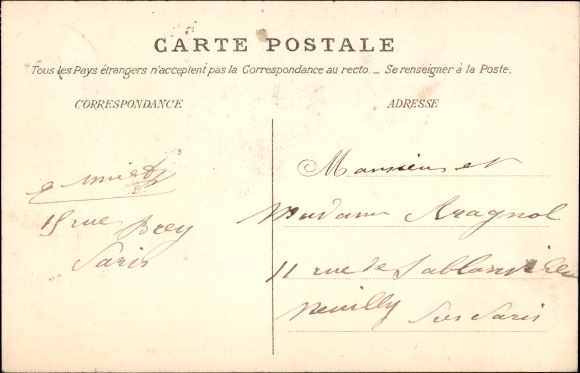 CARTE POSTALE
Tous les Pays étrangers n'acceptent pas la Correspondance au recto. _ Se renseigner à la Poste.
CORRESPONDANCE
ADRESSE
15 rue Brey
Paris
Monsieur et
Madame Aragnol
11 rue de
Neuilly Sur Paris